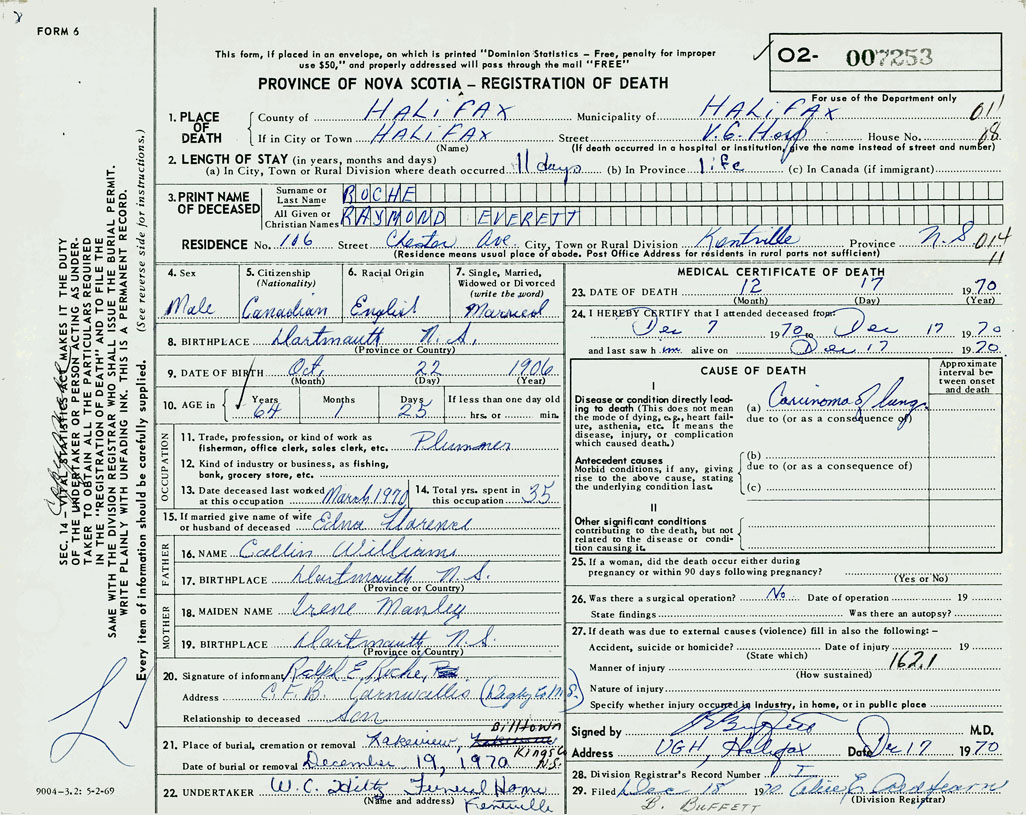 FORM 6
This form, if placed in an envelope, on which is printed "Dominion Statistics – Free, penalty for improper
use $50," and properly addressed will pass through the mail "FREE"
PROVINCE OF NOVA SCOTIA – REGISTRATION OF DEATH
02- 007253
For use of the Department only
1. PLACE OF DEATH County of HALIFAX Municipality of HALIFAX 011
If in City or Town HALIFAX Street V.G. Hosp House No. 68
(Name) (If death occurred in a hospital or institution, give the name instead of street and number)
2. LENGTH OF STAY (in years, months and days)
(a) In City, Town or Rural Division where death occurred 11 days (b) In Province life (c) In Canada (if immigrant)
3. PRINT NAME OF DECEASED
Surname or Last Name ROCHE
All Given or Christian Names RAYMOND EVERETT
RESIDENCE No. 106 Street Chester Ave. City, Town or Rural Division Kentville Province N.S 014
(Residence means usual place of abode. Post Office Address for residents in rural parts not sufficient) 11
4. Sex Male
5. Citizenship (Nationality) Canadian
6. Racial Origin English
7. Single, Married, Widowed or Divorced (write the word) Married
8. BIRTHPLACE Dartmouth N.S.
(Province or Country)
9. DATE OF BIRTH Oct. 22 1906
(Month) (Day) (Year)
10. AGE in Years 64 Months 1 Days 25 If less than one day old hrs. or min.
OCCUPATION
11. Trade, profession, or kind of work as
fisherman, office clerk, sales clerk, etc. Plummer
12. Kind of industry or business, as fishing,
bank, grocery store, etc.
13. Date deceased last worked at this occupation March 1970 14. Total yrs. spent in this occupation 35
15. If married give name of wife
or husband of deceased Edna Florence
FATHER
16. NAME Williams
17. BIRTHPLACE Dartmouth N.S.
(Province or Country)
MOTHER
18. MAIDEN NAME Irene Manley
19. BIRTHPLACE Dartmouth N.S.
(Province or Country)
20. Signature of informant Ralph E Roche,
Address C.F.B. Cornwallis (Digby Co N.S.)
Relationship to deceased Son
21. Place of burial, cremation or removal Lakeview, Billtown
Kings Co N.S.
Date of burial or removal December 19, 1970
22. UNDERTAKER W.C. Hiltz Funeral Home
(Name and address) Kentville
MEDICAL CERTIFICATE OF DEATH
23. DATE OF DEATH 12 17 1970
(Month) (Day) (Year)
24. I HEREBY CERTIFY that I attended deceased from:
Dec 7 1970 to Dec 17 1970
and last saw h im alive on Dec 17 1970
CAUSE OF DEATH
Approximate interval between onset and death
I
Disease or condition directly leading to death (This does not mean
the mode of dying, e.g., heart failure, asthenia, etc. It means the
disease, injury, or complication
which caused death.)
(a) Carcinoma of lung.
due to (or as a consequence of)
Antecedent causes
Morbid conditions, if any, giving
rise to the above cause, stating
the underlying condition last.
(b)
due to (or as a consequence of)
(c)
II
Other significant conditions
contributing to the death, but not
related to the disease or condition causing it.
25. If a woman, did the death occur either during
pregnancy or within 90 days following pregnancy?
(Yes or No)
26. Was there a surgical operation? No Date of operation 19
State findings Was there an autopsy?
27. If death was due to external causes (violence) fill in also the following: –
Accident, suicide or homicide? Date of injury 19
(State which) 162.1
Manner of injury
(How sustained)
Nature of injury
Specify whether injury occured in industry, in home, or in public place
Signed by M.D.
Address VGH, Halifax Date Dec 17 1970
28. Division Registrar's Record Number
29. Filed Dec 18 1970
(Division Registrar)
B. BUFFETT
SEC. 14 – VITAL STATISTICS ACT MAKES IT THE DUTY
OF THE UNDERTAKER OR PERSON ACTING AS UNDERTAKER
TO OBTAIN ALL THE PARTICULARS REQUIRED
IN THE "REGISTRATION OF DEATH" AND TO FILE THE
SAME WITH THE DIVISION REGISTRAR WHO SHALL ISSUE THE BURIAL PERMIT.
WRITE PLAINLY WITH UNFADING INK. THIS IS A PERMANENT RECORD.
Every item of information should be carefully supplied. (See reverse side for instructions.)
9004-3.2: 5-2-69